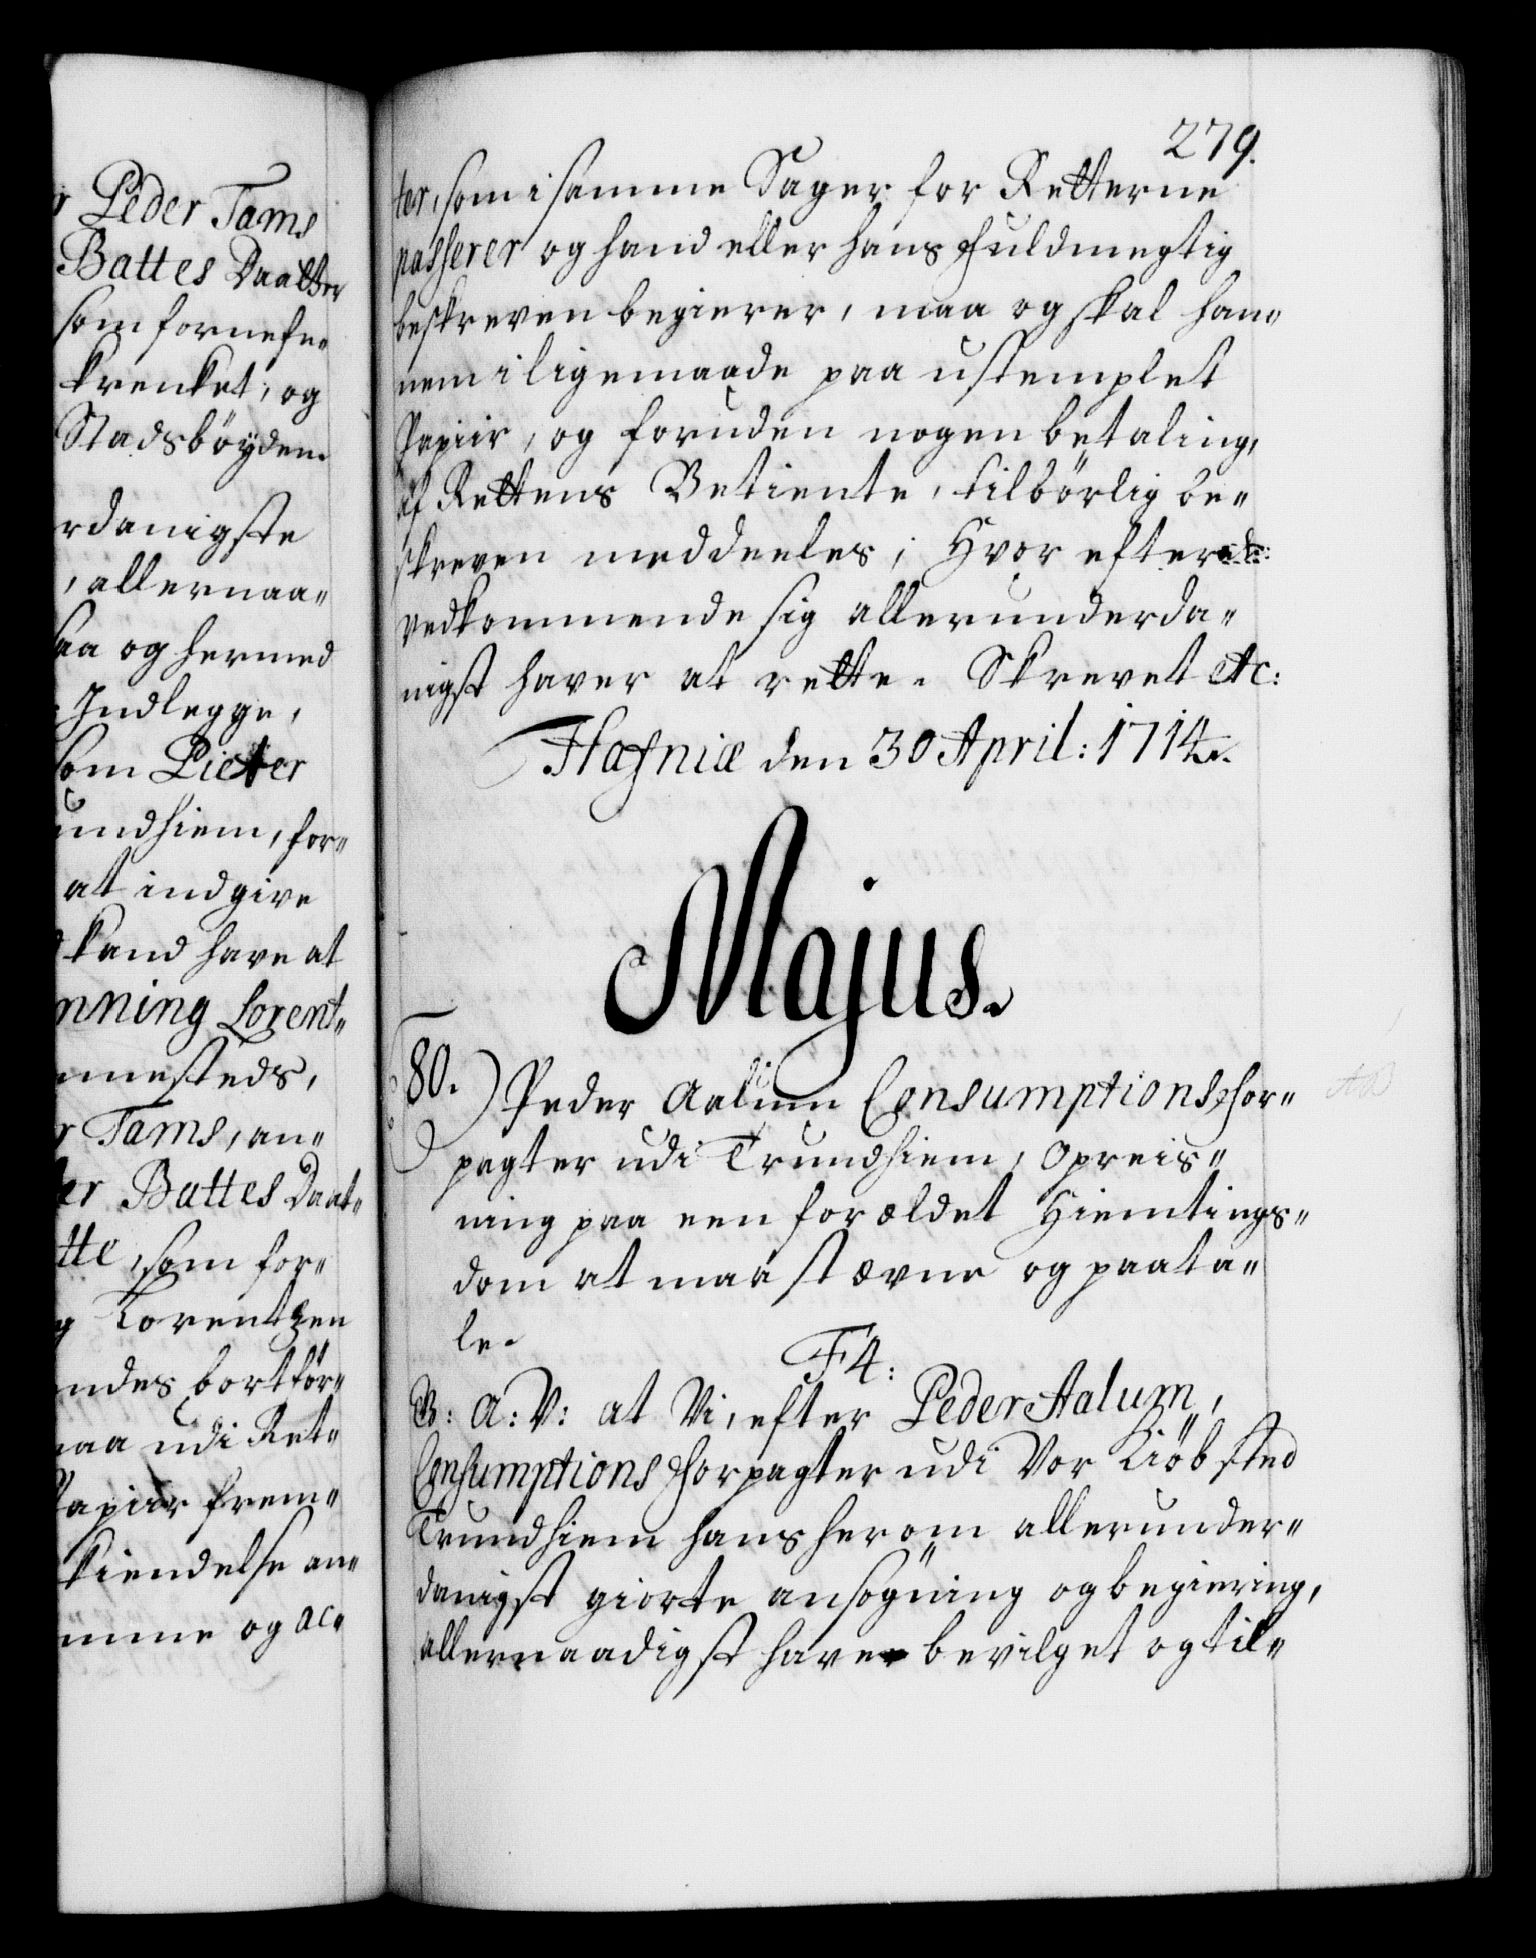 r Peder Tams
Battes Daatter
som fornefn„
krenket, og
Stadsböyden.
rdanigste
, allernaa„
saa og hermed
Indlegge,
som Pieter
undhiem, for„
at indgive
kand have at
nning Lorent„
mmesteds,
r Tams, an„
er Battes Daat„
tte, som for„
g Lorentzen
ndes bortför„
maa udi Ret„
Papiir frem„
kiendelse an„
mme og ac„
279.
ter, som i samme Sager for Retterne
passerer og hand eller hans Fuldmegtig
beskreven begierer, maa og skal han„
nem i ligemaade paa ustemplet
Papiir, og foruden nogen betaling,
af Rettens Betiente, tilbörlig be„
skreven meddeeles; Hvor efter
vedkommende sig allerunderda„
nigst haver at rette. Skrevet etc:
Hafniæ den 30 April: 1714.
Majus.
80.) Peder Aalum Consumptions For„
pagter udi Trundhiem, Opreis„
ning paa een forældet Hiemtings„
dom at maa stævne og paata„
le.
F4:
G: A: V: at Vi, efter Peder Aalum,
Consumptions Forpagter udi Vor Kiöbsted
Trundhiem hans herom allerunder„
danigst giorte ansögning og begiering,
allernaadigst haver bevilget og til„